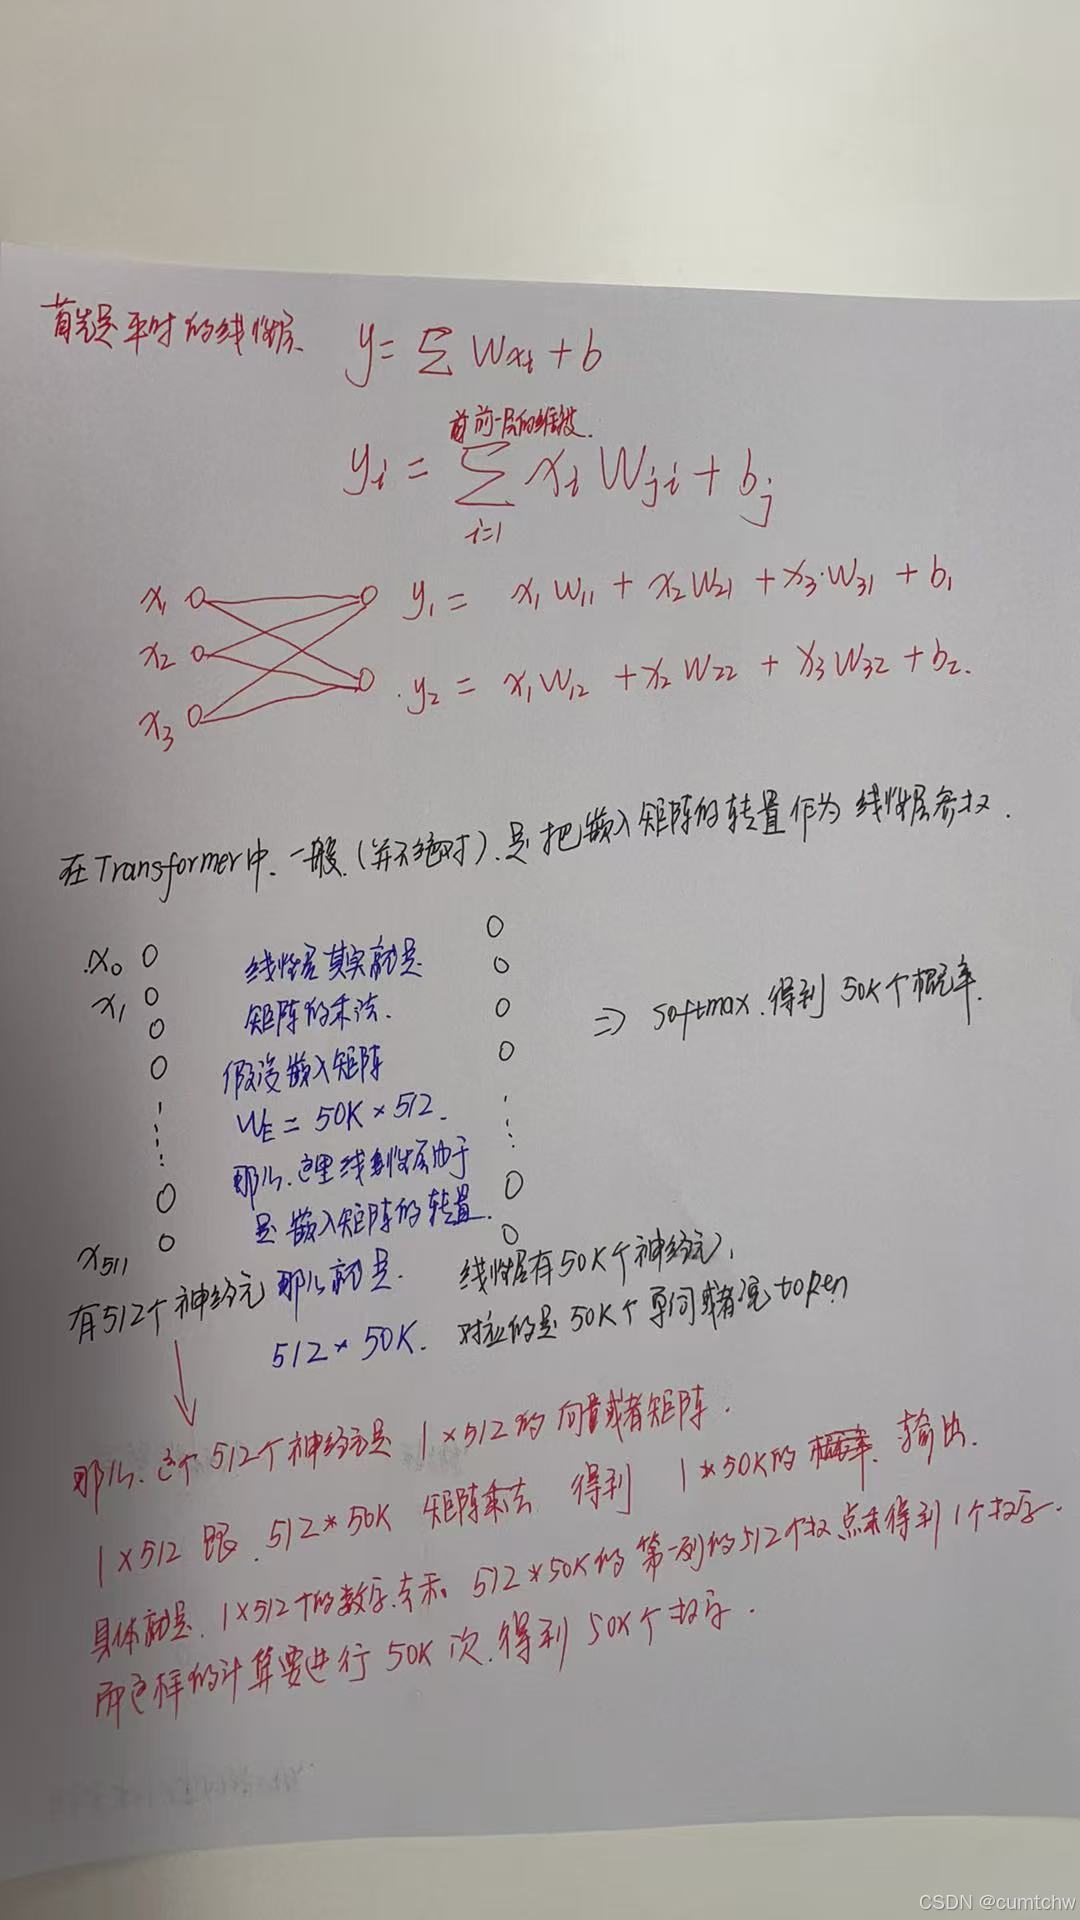 首先是平时的线性层 y = Σ Wxi + b
当前一层的维度
yi = Σ xi Wji + bj
i=1
x1 y1 = x1 W11 + x2 W21 + x3·W31 + b1
x2
x3 y2 = x1 W12 + x2 W22 + x3 W32 + b2.
在Transformer中,一般(并不绝对).是把嵌入矩阵的转置作为线性层参数.
x0 线性层其实就是
x1 矩阵的乘法. => softmax.得到 50K个概率.
假设嵌入矩阵
WE = 50K × 512.
那么.这里线性层由于
是嵌入矩阵的转置.
x511
有512个神经元 那么就是. 线性层有50K个神经元,
512 * 50K. 对应的是 50K个单词或者说 token
那么.这个512个神经元是 1×512的向量或者矩阵.
1×512 跟.512*50K 矩阵乘法 得到 1*50K的概率.输出.
具体就是.1×512个的数字.去和 512*50K的第一列的512个数点乘得到1个数字.
而这样的计算要进行 50K次.得到 50K个数字.
CSDN @cumtchw